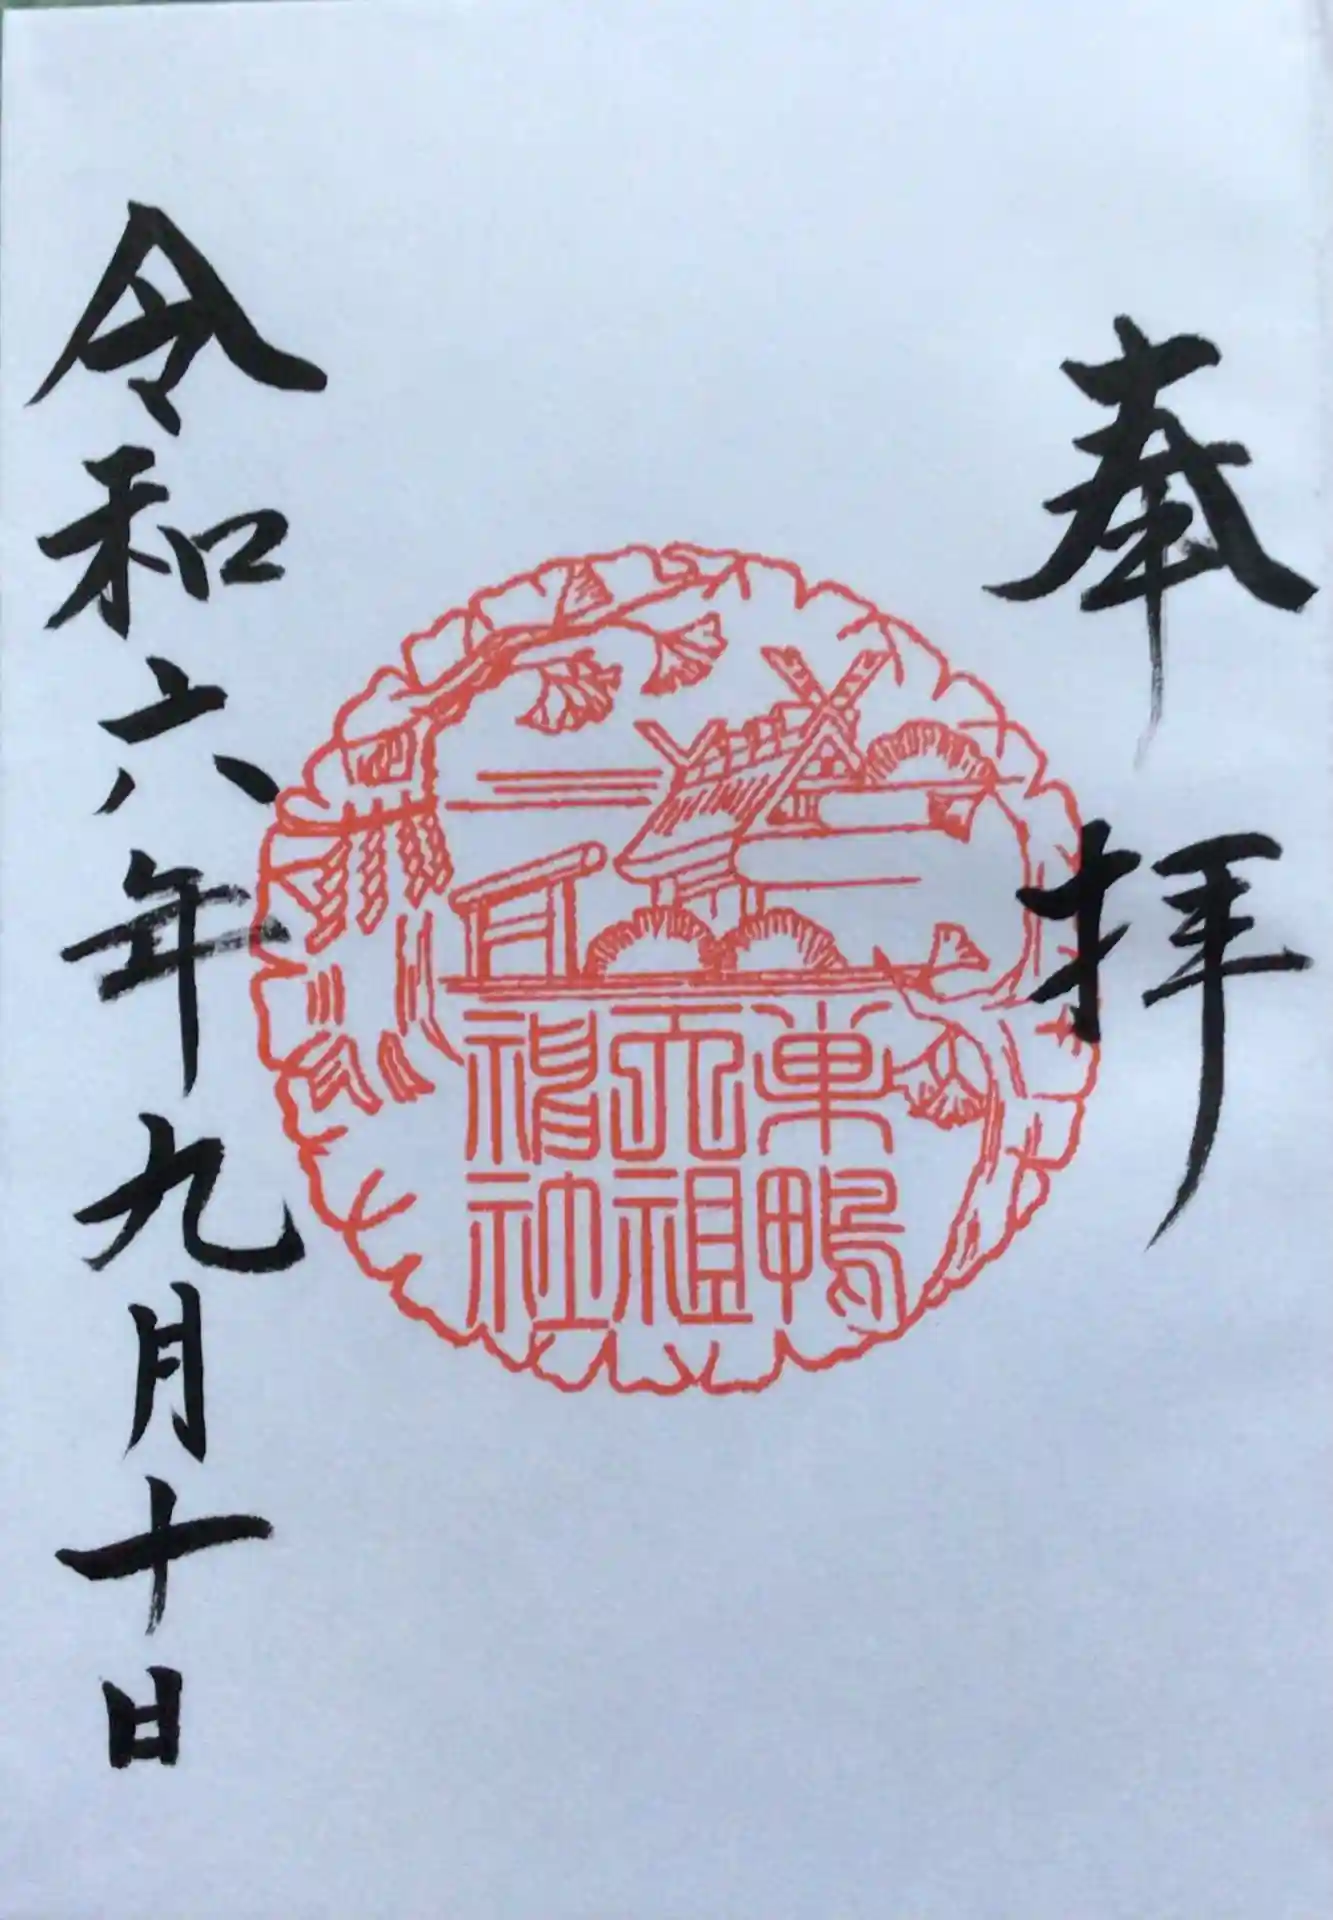 奉拝
巣鴨
天祖
神社
令和六年九月十日